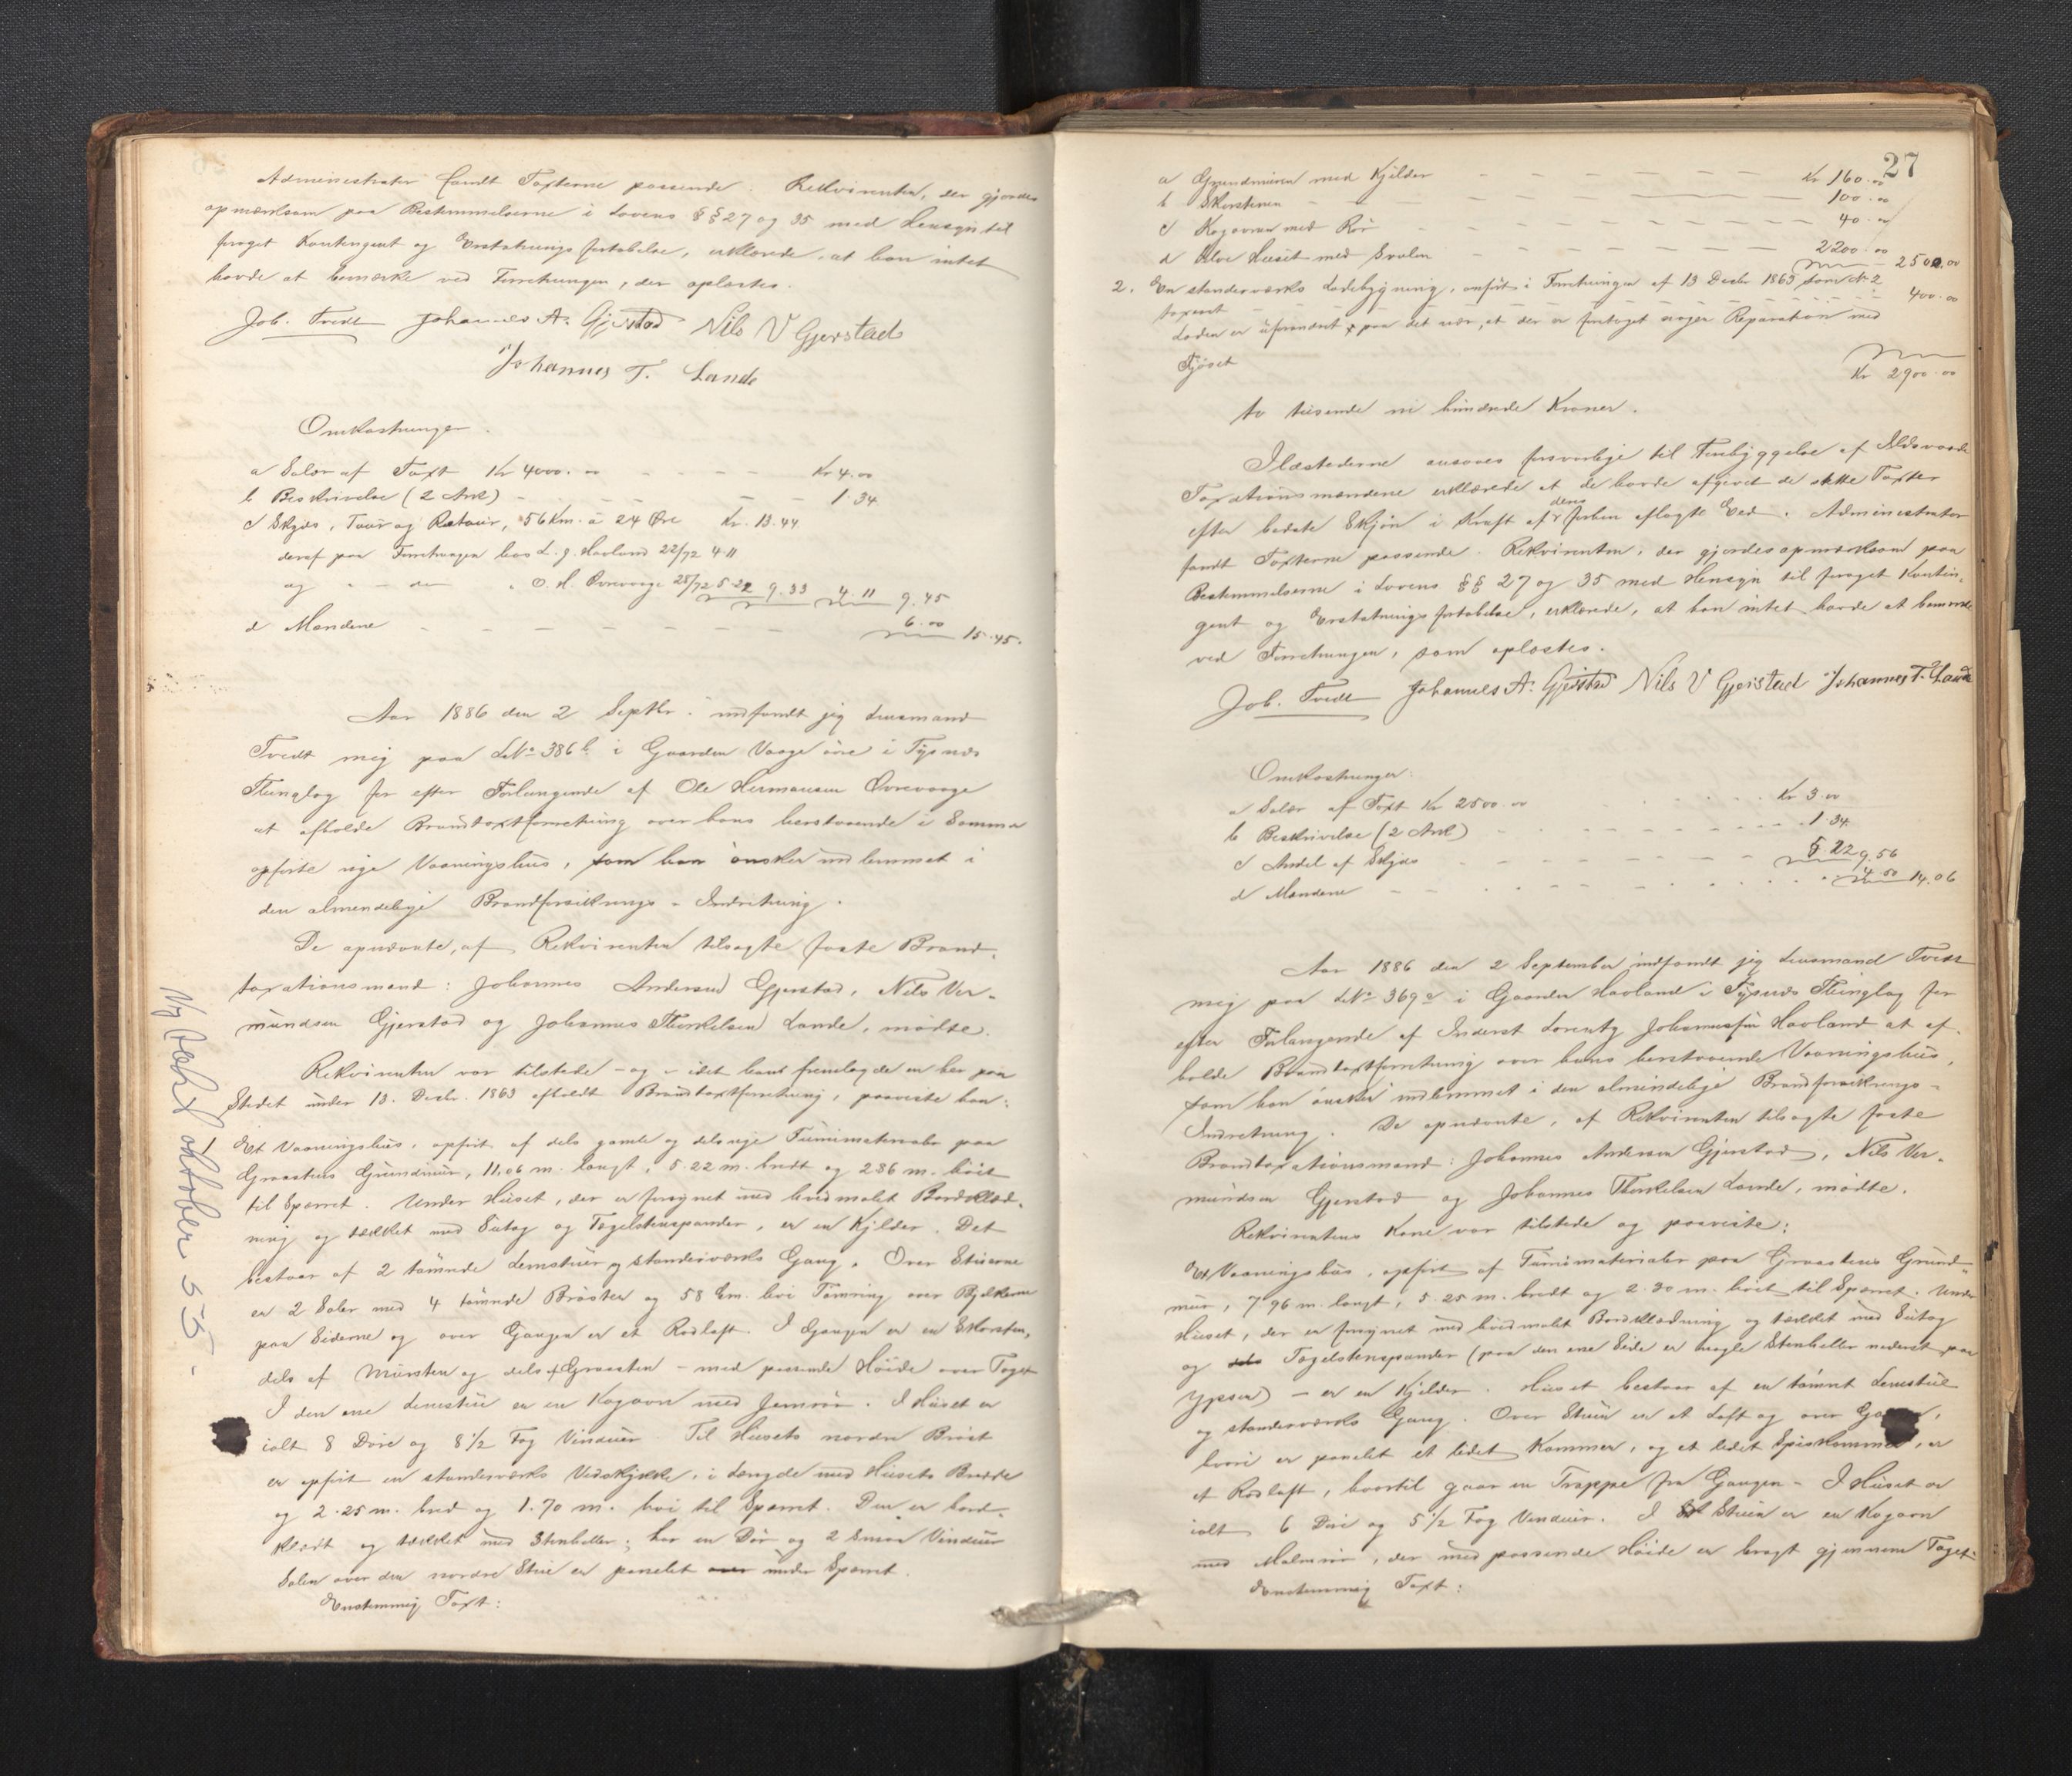 Administrator fandt Taxterne passende. Rekvirenten, der gjordes
opmærksom paa Bestemmelserne i Lovens §§ 27 og 35 med Hensyn til
foröget Kontingent og Erstatnings fortabelse, erklærede, at han intet
havde at bemærke ved Forretningen, der oplæstes.
Job. Tvedt Johannes A. Gjerstad Nils V Gjerstad
Johannes T. Lande
Omkostninger.
a Salær af Taxt Kr 4000.00 Kr 4.00
b Beskrivelse (2 Ark) 1.34
c Skyds, Tour og Retour, 56 Km. a 24 Øre Kr. 13.44
deraf paa Forretningen hos L. J. Havland 22/72 4.11
og - den O. H. Övrevaage 28/72 5.22 9.33 4.11 9.45
d Mændene 6.00 15.45.
Aar 1886 den 2 Septbr. indfandt jeg Lensmand
Tvedt mig paa LNo 386 b i Gaarden Vaage övre i Tysnæs
Thinglag for efter Forlangende af Ole Hermansen Övrevaage
at afholde Brandtaxtforretning over hans herstaaende i Sommer
opförte nye Vaaningshus, som han önsker indlemmet i
den almindelige Brandforsikrings-Indretning.
De opnævnte, af Rekvirenten tilsagte faste Brand-
taxationsmænd: Johannes Andersen Gjerstad, Nils Ver-
mundsen Gjerstad og Johannes Therkelsen Lande, mödte.
Rekvirenten var tilstede - og - idet han fremlagde en her paa
Stedet under 13. Decbr. 1863 afholdt Brandtaxtforretning, paaviste han:
1 Et Vaaningshus, opfört af dels gamle og dels nye Furumaterialer paa
Graastens Grundmur, 11.06 m. langt, 5.22 m. bredt og 2.86 m. höit
til Sparret. Under Huset, der er forsynet med hvidmalet Bordklæd-
ning og tækket med Sutag og Tagelstenspander, er en Kjelder. Det
bestaar af 2 tömrede Lemstuer og standerværks Gang. Over Stuerne
er 2 Saler med 4 tömrede Bröster og 58 Cm. höi Tömring over Bjelkerne
paa Siderne og over Gangen er et Rodloft. I Gangen er en Skorsten,
dels af Mursten og dels af Graasten - med passende Höide over Taget
I den ene Lemstue er en Kogovn med Jernrör. I Huset er
ialt 8 Döre og 8 1/2 Fag Vinduer. Til Husets nordre Bröst
er opfört en standerværks Vedskykke, i Længde med Husets Bredde
og 2.25 m. bred og 1.70 m. höi til Sparret. Den er bord-
klædt og tækket med Stenheller; har en Dör og 2 smaa Vinduer
Salen over den nordre Stue er panelet over under Sparret.
Enstemmig Taxt:
Ny taxt oktober 55 -
27
a Grundmuren med Kjelder Kr 160.00
b Skorstenen 100.00
c Kogovnen med Rör 40.00
d Selve Huset med Svalen 2200.00 2500.00
2. En standerværks Ladebygning, anfört i Forretningen af 13 Decbr 1863 som No 2
taxeret 400.00
Laden er uforandret paa det nær, at der er foretaget nogen Reparation med
Fjöset
Kr 2900.00
to tusende ni hundrede Kroner.
Ildstederne ansaaes forsvarlige til Forebyggelse af Ildsvaade
Taxationsmændene erklærede at de havde afgivet de skete Taxter
efter bedste Skjön i Kraft af deres forhen aflagte Eed. Administrator
fandt Taxterne passende. Rekvirenten, der gjordes opmærksom paa
Bestemmelserne i Lovens §§ 27 og 35 med Hensyn til foröget Kontin-
gent og Erstatnings fortabelse, erklærede, at han intet havde at bemærke
ved Forretningen, som oplæstes.
Job. Tvedt Johannes A. Gjerstad Nils V Gjerstad Johannes T. Lande
Omkostninger:
a Salær af Taxt Kr 2500.00 Kr 3.00
b Beskrivelse (2 Ark) 1.34
c Andel af Skyds 5.22 9.56
d Mændene 4.50 14.06
Aar 1886 den 2 September indfandt jeg Lensmand Tvedt
mig paa LNo 369 a i Gaarden Havland i Tysnæs Thinglag for
efter Forlangende af Inderst Lorentz Johannesen Havland at af-
holde Brandtaxtforretning over hans herstaaende Vaaningshus,
som han önsker indlemmet i den almindelige Brandforsikrings-
Indretning. De opnævnte, af Rekvirenten tilsagte faste
Brandtaxationsmænd: Johannes Andersen Gjerstad, Nils Ver-
mundsen Gjerstad og Johannes Therkelsen Lande, mödte.
Rekvirentens Kone var tilstede og paaviste:
Et Vaaningshus, opfört af Furumaterialer paa Graastens Grund-
mur, 7.96 m. langt, 5.25 m. bredt og 2.30 m. höit til Sparret. Under
Huset, der er forsynet med hvidmalet Bordklædning og tækket med Sutag
og dels Tagelstenspander (paa den ene Side er nogle Stenheller nederst paa
Ypsen) - er en Kjelder. Huset bestaar af en tömret Lemstue
og standerværks Gang. Over Stuen er et Loft og over Gangen,
hvori er panelet et lidet Kammer, og et lidet Spiskammer, er
et Rodloft, hvortil gaar en Trappe fra Gangen - I Huset er
ialt 6 Döre og 5 1/2 Fag Vinduer. I Stuen er en Kogovn
med Malmrör, der med passende Höide er bragt gjennem Taget
Enstemmig Taxt: